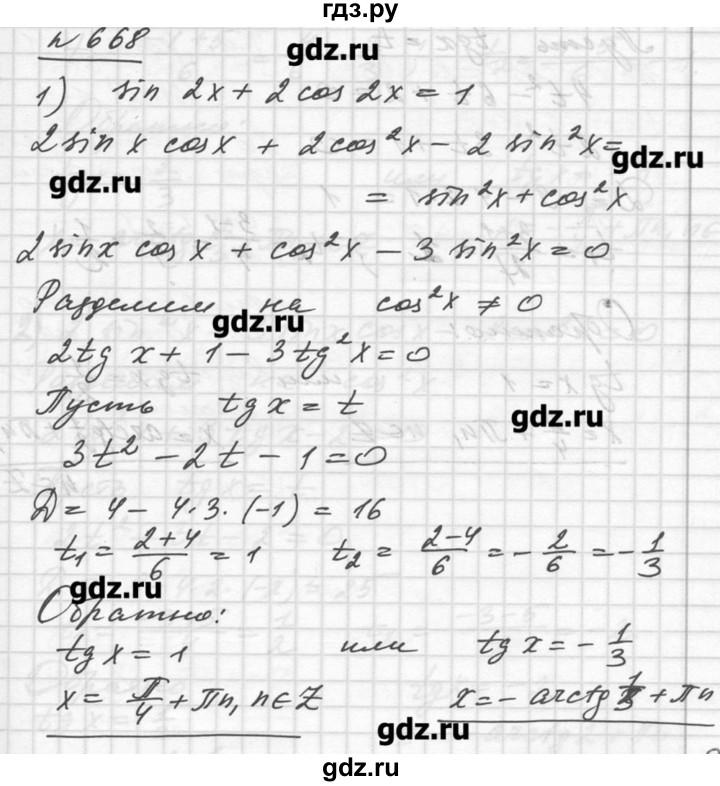 гдз.ру
№ 668
gdz.ru
1) sin 2x + 2 cos 2x = 1
2 sin x cos x + 2 cos²x − 2 sin²x =
gdz.ru
gdz.ru
= sin²x + cos²x
2 sin x cos x + cos²x − 3 sin²x = 0
Разделим на cos²x ≠ 0
gdz.ru
2 tg x + 1 − 3 tg²x = 0
Пусть tg x = t
gdz.ru
3t² − 2t − 1 = 0
Д = 4 − 4·3·(−1) = 16
t₁ = (2+4)/6 = 1 t₂ = (2−4)/6 = −2/6 = −1/3
gdz.ru
Обратно:
tg x = 1 или tg x = −1/3
x = π/4 + πn, n∈Z x = −arctg 1/3 + πn
gdz.ru
gdz.ru